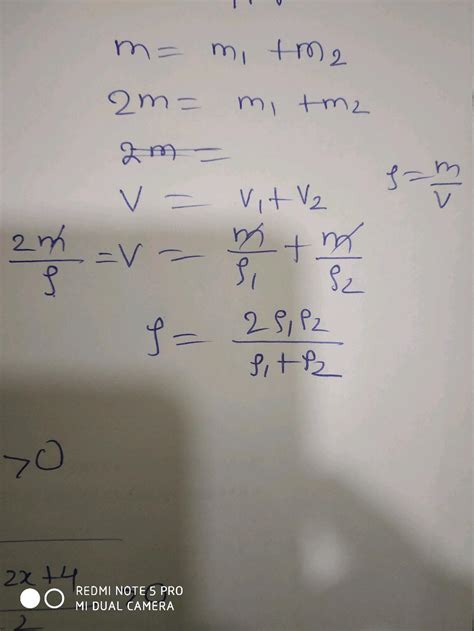 m = m₁ + m₂
2m = m₁ + m₂
2m =
V = V₁ + V₂
ρ = m/V
2m/ρ = V = m/ρ₁ + m/ρ₂
ρ = 2ρ₁ρ₂/ρ₁+ρ₂
>0
2x+4/2
REDMI NOTE 5 PRO
MI DUAL CAMERA